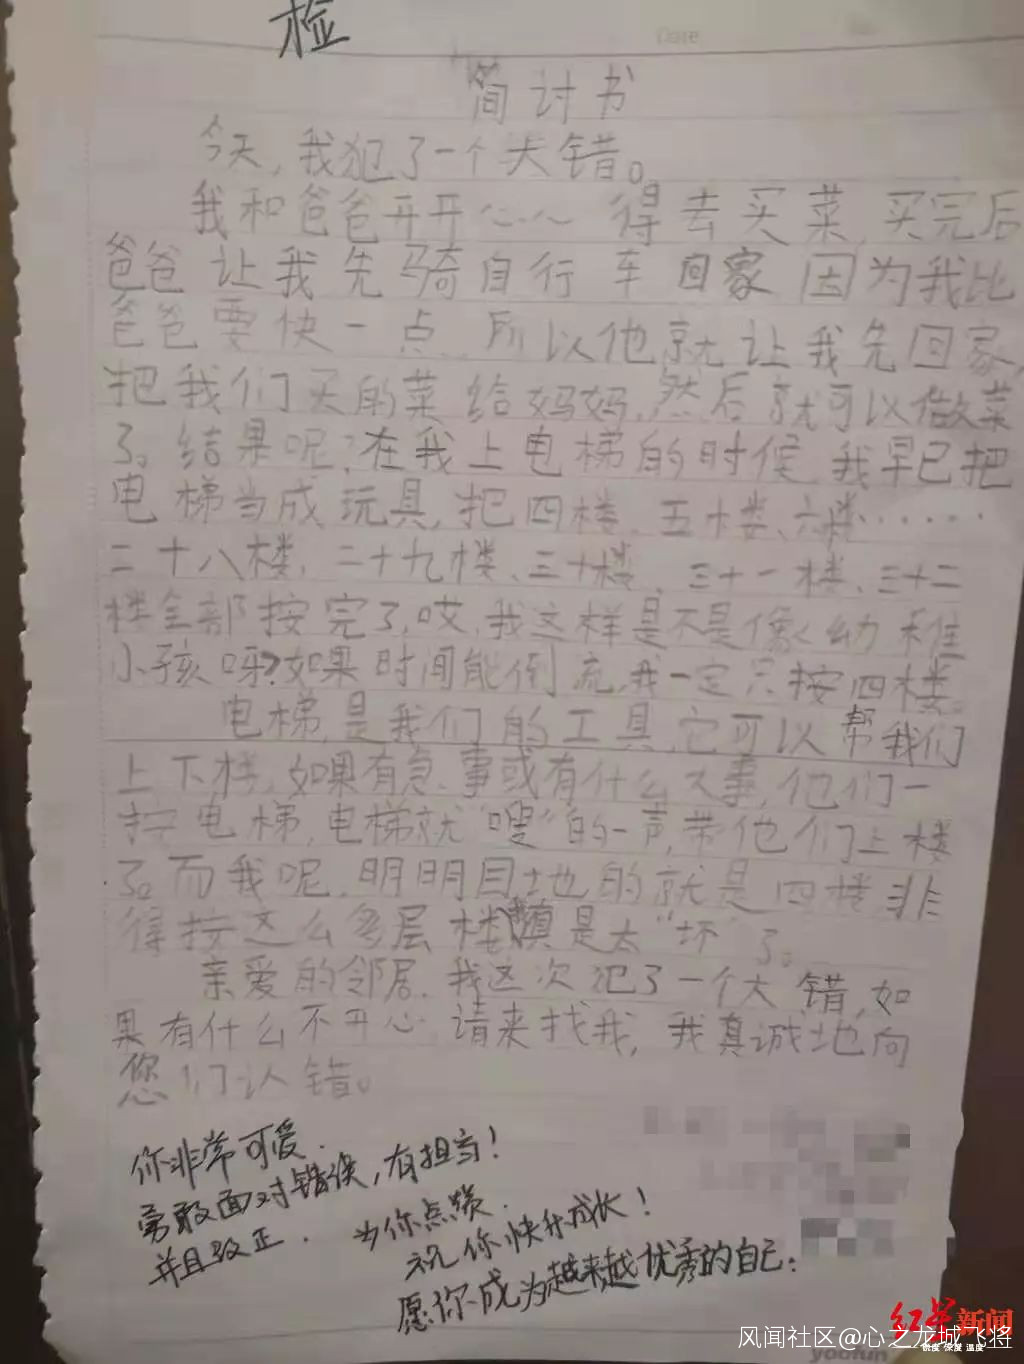 检
Date
简讨书
今天,我犯了一个大错。
我和爸爸开开心心得去买菜,买完后
爸爸让我先骑自行车回家因为我比
爸爸要快一点,所以他就让我先回家,
把我们买的菜给妈妈,然后就可以做菜
了。结果呢?在我上电梯的时候,我早已把
电梯当成玩具,把四楼、五楼、六楼……
二十八楼、二十九楼、三十楼、三十一楼、三十二
楼全部按完了,哎,我这样是不是像幼稚
小孩呀?如果时间能倒流,我一定只按四楼。
电梯,是我们的工具,它可以帮我们
上下楼,如果有急事或有什么大事,他们一
按电梯,电梯就“嗖”的一声,带他们上楼
了。而我呢,明明目地的就是四楼非
得按这么多层楼,真是太“坏”了。
亲爱的邻居,我这次犯了一个大错,如
果有什么不开心,请来找我,我真诚地向
您们认错。
你非常可爱.
勇敢面对错误,有担当!
并且改正. 为你点赞.
祝你快升成长!
愿你成为越来越优秀的自己:
红星新闻
锐度 深度 温度
风闻社区@心之龙城飞将
youfun